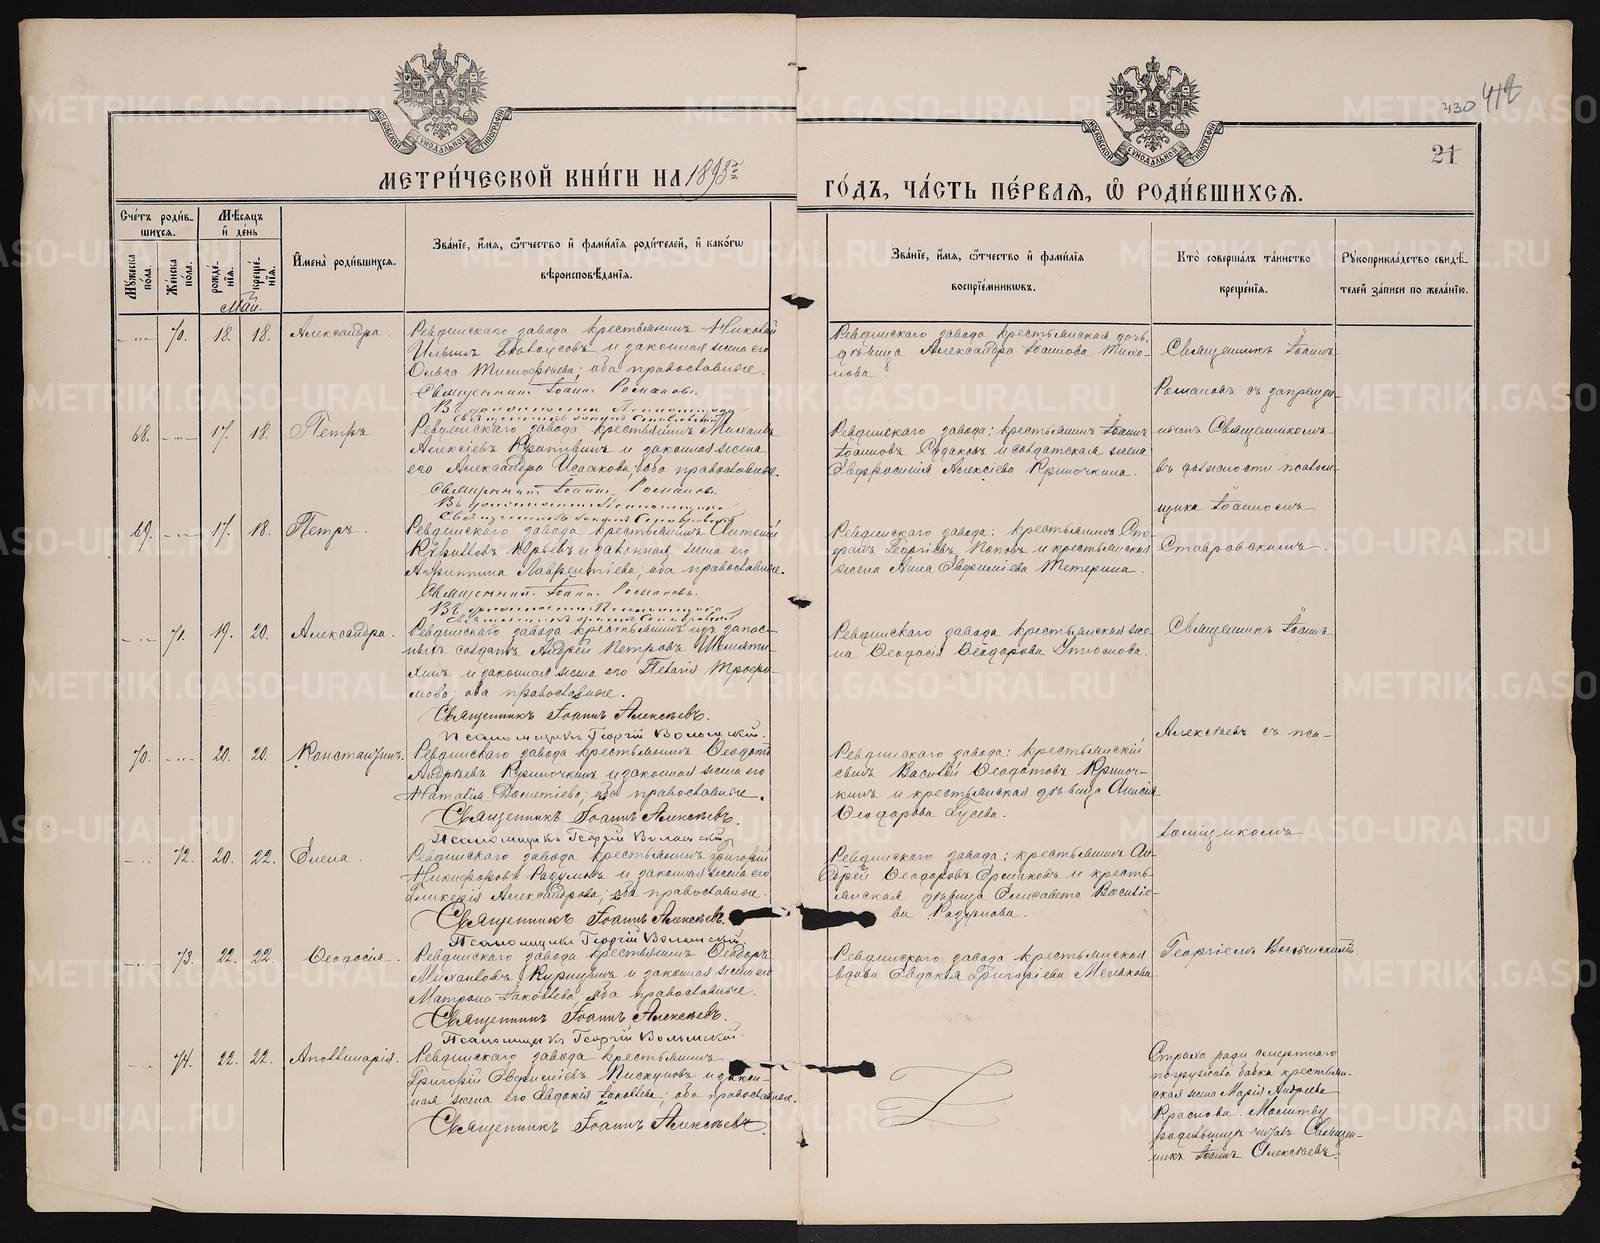 430 412
21
МОСКОВСКОЙ СѴНОДАЛЬНОЙ ТИПОГРАФІИ
МОСКОВСКОЙ СѴНОДАЛЬНОЙ ТИПОГРАФІИ
МЕТРИ́ЧЕСКОЙ КНИ́ГИ НА 1895 ГО́ДЪ, ЧА́СТЬ ПЕ́РВАЯ, Ѡ РОДИ́ВШИХСЯ.
Сче́тъ роди́вшихся.
Мѣ́сяцъ и҆ де́нь
Му́жеска по́ла.
Же́нска по́ла.
рожде́нїя.
креще́нїя.
И҆мена̀ роди́вшихся.
Зва́нїе, и҆́мя, ѻ҆́тчество и҆ фами́лїя роди́телей, и҆ како́гѡ
вѣроисповѣ́данїя.
Зва́нїе, и҆́мя, ѻ҆́тчество и҆ фами́лїя
воспрїе́мникѡвъ.
Кто̀ соверша́лъ та́инство
креще́нїя.
Рꙋкоприкла́дство свидѣ́-
телей за́писи по жела́нїю.
Май.
70. 18. 18. Александра.
Ревдинскаго завода крестьянинъ Николай
Ильинъ Бѣлоусовъ и законная жена его
Ольга Тимофѣева; оба православные.
Священникъ Іоаннъ Романовъ.
Въ должности Псаломщика
Священникъ Іоаннъ Ставровскій
Ревдинскаго завода крестьянская дочь,
дѣвица Александра Іоаннова Тихо-
нова.
Священникъ Іоаннъ
Романовъ съ запрещен-
нымъ Священникомъ
въ должности псалом-
щика Іоанномъ
Ставровскимъ.
68. 17. 18. Петръ
Ревдинскаго завода крестьянинъ Михаилъ
Алексѣевъ и законная жена
его Александра Исаакова; оба православные.
Священникъ Іоаннъ Романовъ.
Въ должности Псаломщика
Священникъ Іоаннъ Ставровскій
Ревдинскаго завода: крестьянинъ Іоаннъ
Іоанновъ и солдатская жена
Евфросинія Алексѣева Криночкина.
69. 17. 18. Петръ.
Ревдинскаго завода крестьянинъ
Кѵрилловъ Юрьевъ и законная жена его
Агриппина Лаврентіева; оба православные.
Священникъ Іоаннъ Романовъ.
Въ должности Псаломщика
Священникъ Іоаннъ Ставровскій
Ревдинскаго завода: крестьянинъ Сте-
фанъ Георгіевъ Поповъ и крестьянская
жена Анна Евфиміева Тетерина.
71. 19. 20. Александра.
Ревдинскаго завода крестьянинъ изъ запас-
ныхъ солдатъ Андрей Петровъ
и законная жена его Пелагія Трофи-
мова; оба православные.
Священникъ Іоаннъ Алексѣевъ.
Псаломщикъ Георгій Волынскій.
Ревдинскаго завода крестьянская же-
на Ѳеодосія Ѳеодорова Утюмова.
Священникъ Іоаннъ
Алексѣевъ съ пса-
ломщикомъ
Георгіемъ Волынскимъ.
70. 20. 20. Константинъ.
Ревдинскаго завода крестьянинъ Ѳеодотъ
Андреевъ Криночкинъ и законная жена его
Наталія Дометіева; оба православные.
Священникъ Іоаннъ Алексѣевъ.
Псаломщикъ Георгій Волынскій
Ревдинскаго завода: крестьянскій
сынъ Василій Ѳеодотовъ Криноч-
кинъ и крестьянская дѣвица Анисія
Ѳеодорова Гусева.
72. 20. 22. Елена.
Ревдинскаго завода крестьянинъ Григорій
Никифоровъ и законная жена его
Гликерія Александрова; оба православные.
Священникъ Іоаннъ Алексѣевъ.
Псаломщикъ Георгій Волынскій
Ревдинскаго завода: крестьянинъ Ан-
дрей Ѳеодоровъ Ермаковъ и кресть-
янская дѣвица Елисавета Василіе-
ва
73. 22. 22. Ѳеодосія.
Ревдинскаго завода крестьянинъ Ѳеодоръ
Михаиловъ Курицынъ и законная жена его
Матрона Іаковлева; оба православные.
Священникъ Іоаннъ Алексѣевъ.
Псаломщикъ Георгій Волынскій.
Ревдинскаго завода крестьянская
вдова Евдокія Григоріева Мелехова.
74. 22. 22. Аполлинарія.
Ревдинскаго завода крестьянинъ
Григорій Евфиміевъ Пискуновъ и закон-
ная жена его Евдокія Іаковлева; оба православные.
Священникъ Іоаннъ Алексѣевъ.
Страха ради смертнаго
погружена бабка крестьян-
ская жена Марія Андреева
Краснова. Молитву
родивширъ читалъ Священ-
никъ Іоаннъ Алексѣевъ.
METRIKI.GASO-URAL.RU